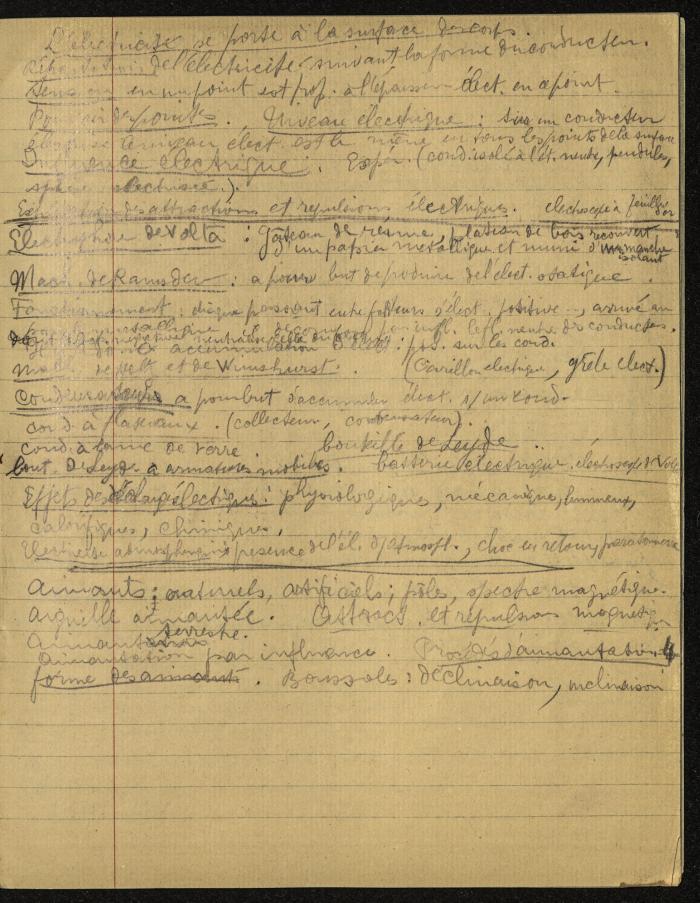 L'électricité se porte à la surface des corps.
de l'électricité suivant la forme du conducteur.
en un point est prop. à l'épaisseur élect. en ce point.
Pouvoir des pointes. Niveau électrique : sur un conducteur
le niveau élect. est le même en tous les points de la surface
Influence électrique. Expér. (cond. isolé à l'ét. neutre, pendules,
sphère électrisée.).
Explication des attractions et répulsions électriques. electroscope à feuilles d'or
Electrophore de Volta : gâteau de résine, plateau de bois recouvert
d'un papier métallique et muni d'un manche
isolant
Mach. de Ramsden : a pour but de produire de l'élect. statique.
Fonctionnement : disque passant entre s'élect. positive..., arrivé au
par infl. l'él. neutre des conducteurs.
accumulation d'élect. pos. sur les cond.
Mach. et de Wimshurst. (Carillon électrique, grêle élect.)
Condensateurs a pour but d'accumuler élect. s/ un cond.
cond. à plateaux. (collecteur, condensateur).
cond. à lame de verre. bouteille de Leyde.
bout. de Leyde à armatures mobiles. batterie électrique. électroscope de Volta
Effets des décharges électriques : physiologiques, mécanique, lumineux,
calorifiques, chimiques.
Electricité atmosphérique présence de l'él. d/ atmosph., choc en retour, paratonnerre
Aimants : naturels, artificiels ; pôles, spectre magnétique.
aiguille aimantée. Attract. et répulsions magnétiq.
terrestre.
Aimantation par influence. Procédés d'aimantation
forme des aimants. Boussoles : déclinaison, inclinaison